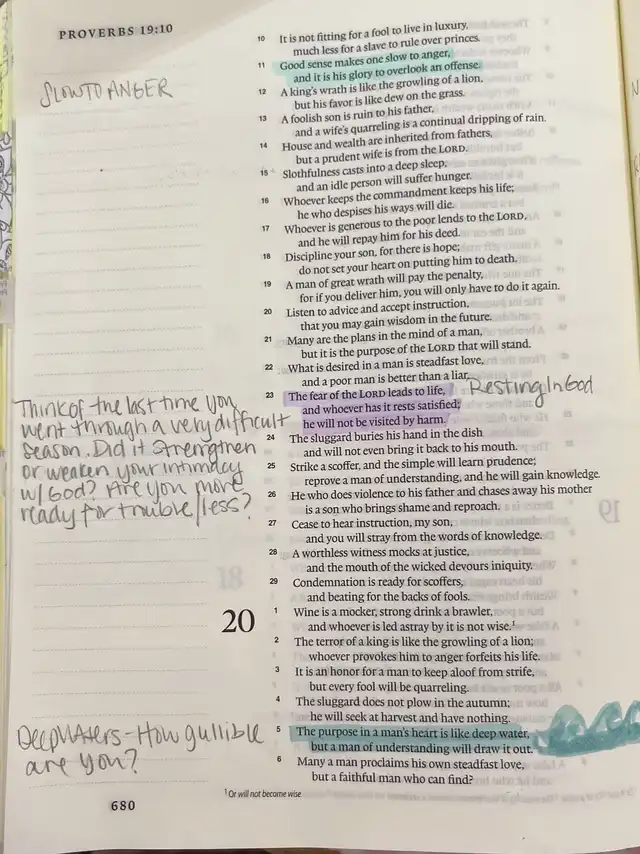 PROVERBS 19:10
SLOW TO ANGER
10 It is not fitting for a fool to live in luxury,
much less for a slave to rule over princes.
11 Good sense makes one slow to anger,
and it is his glory to overlook an offense.
12 A king's wrath is like the growling of a lion,
but his favor is like dew on the grass.
13 A foolish son is ruin to his father,
and a wife's quarreling is a continual dripping of rain.
14 House and wealth are inherited from fathers,
but a prudent wife is from the LORD.
15 Slothfulness casts into a deep sleep,
and an idle person will suffer hunger.
16 Whoever keeps the commandment keeps his life;
he who despises his ways will die.
17 Whoever is generous to the poor lends to the LORD,
and he will repay him for his deed.
18 Discipline your son, for there is hope;
do not set your heart on putting him to death.
19 A man of great wrath will pay the penalty,
for if you deliver him, you will only have to do it again.
20 Listen to advice and accept instruction,
that you may gain wisdom in the future.
21 Many are the plans in the mind of a man,
but it is the purpose of the LORD that will stand.
22 What is desired in a man is steadfast love,
and a poor man is better than a liar.
23 The fear of the LORD leads to life,
and whoever has it rests satisfied;
he will not be visited by harm.
Resting In God
24 The sluggard buries his hand in the dish
and will not even bring it back to his mouth.
25 Strike a scoffer, and the simple will learn prudence;
reprove a man of understanding, and he will gain knowledge.
26 He who does violence to his father and chases away his mother
is a son who brings shame and reproach.
27 Cease to hear instruction, my son,
and you will stray from the words of knowledge.
28 A worthless witness mocks at justice,
and the mouth of the wicked devours iniquity.
29 Condemnation is ready for scoffers,
and beating for the backs of fools.
Think of the last time you
went through a very difficult
season. Did it strengthen
or weaken your intimacy
w/ God? Are you more
ready for trouble/less?
20
1 Wine is a mocker, strong drink a brawler,
and whoever is led astray by it is not wise.1
2 The terror of a king is like the growling of a lion;
whoever provokes him to anger forfeits his life.
3 It is an honor for a man to keep aloof from strife,
but every fool will be quarreling.
4 The sluggard does not plow in the autumn;
he will seek at harvest and have nothing.
5 The purpose in a man's heart is like deep water,
but a man of understanding will draw it out.
6 Many a man proclaims his own steadfast love,
but a faithful man who can find?
Deep Waters - How gullible
are you?
1 Or will not become wise
680